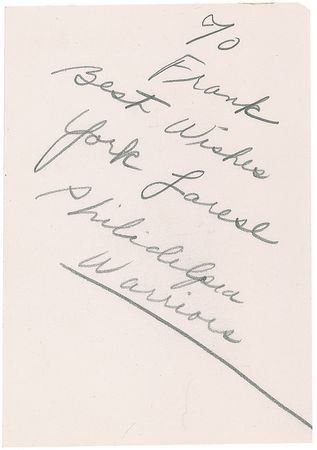 To
Frank
Best Wishes
York Larese
Philidelpia
Warriors